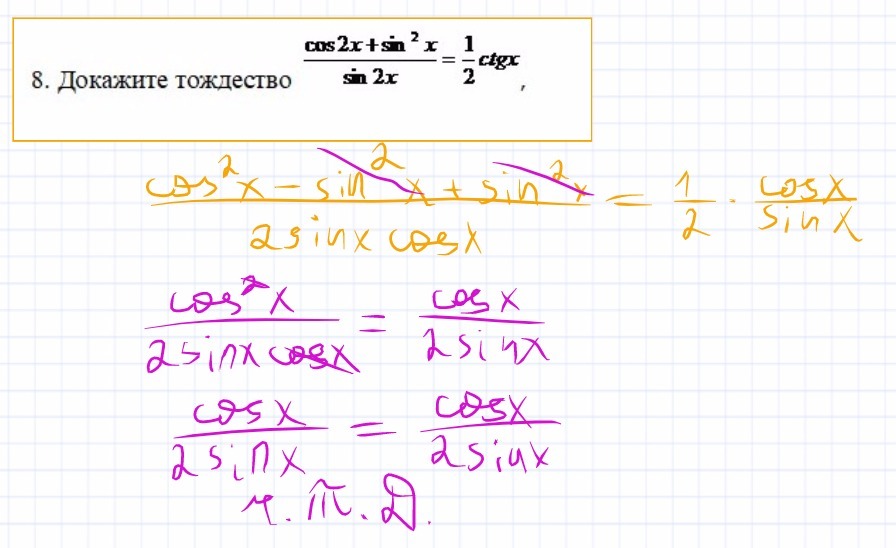 8. Докажите тождество (cos2x+sin²x)/(sin 2x) = 1/2 ctgx,
(cos²x − sin²x + sin²x)/(2sinx cosx) = 1/2 · cosx/sinx
cos²x/(2sinx cosx) = cosx/(2sinx)
cosx/(2sinx) = cosx/(2sinx)
ч.т.д.